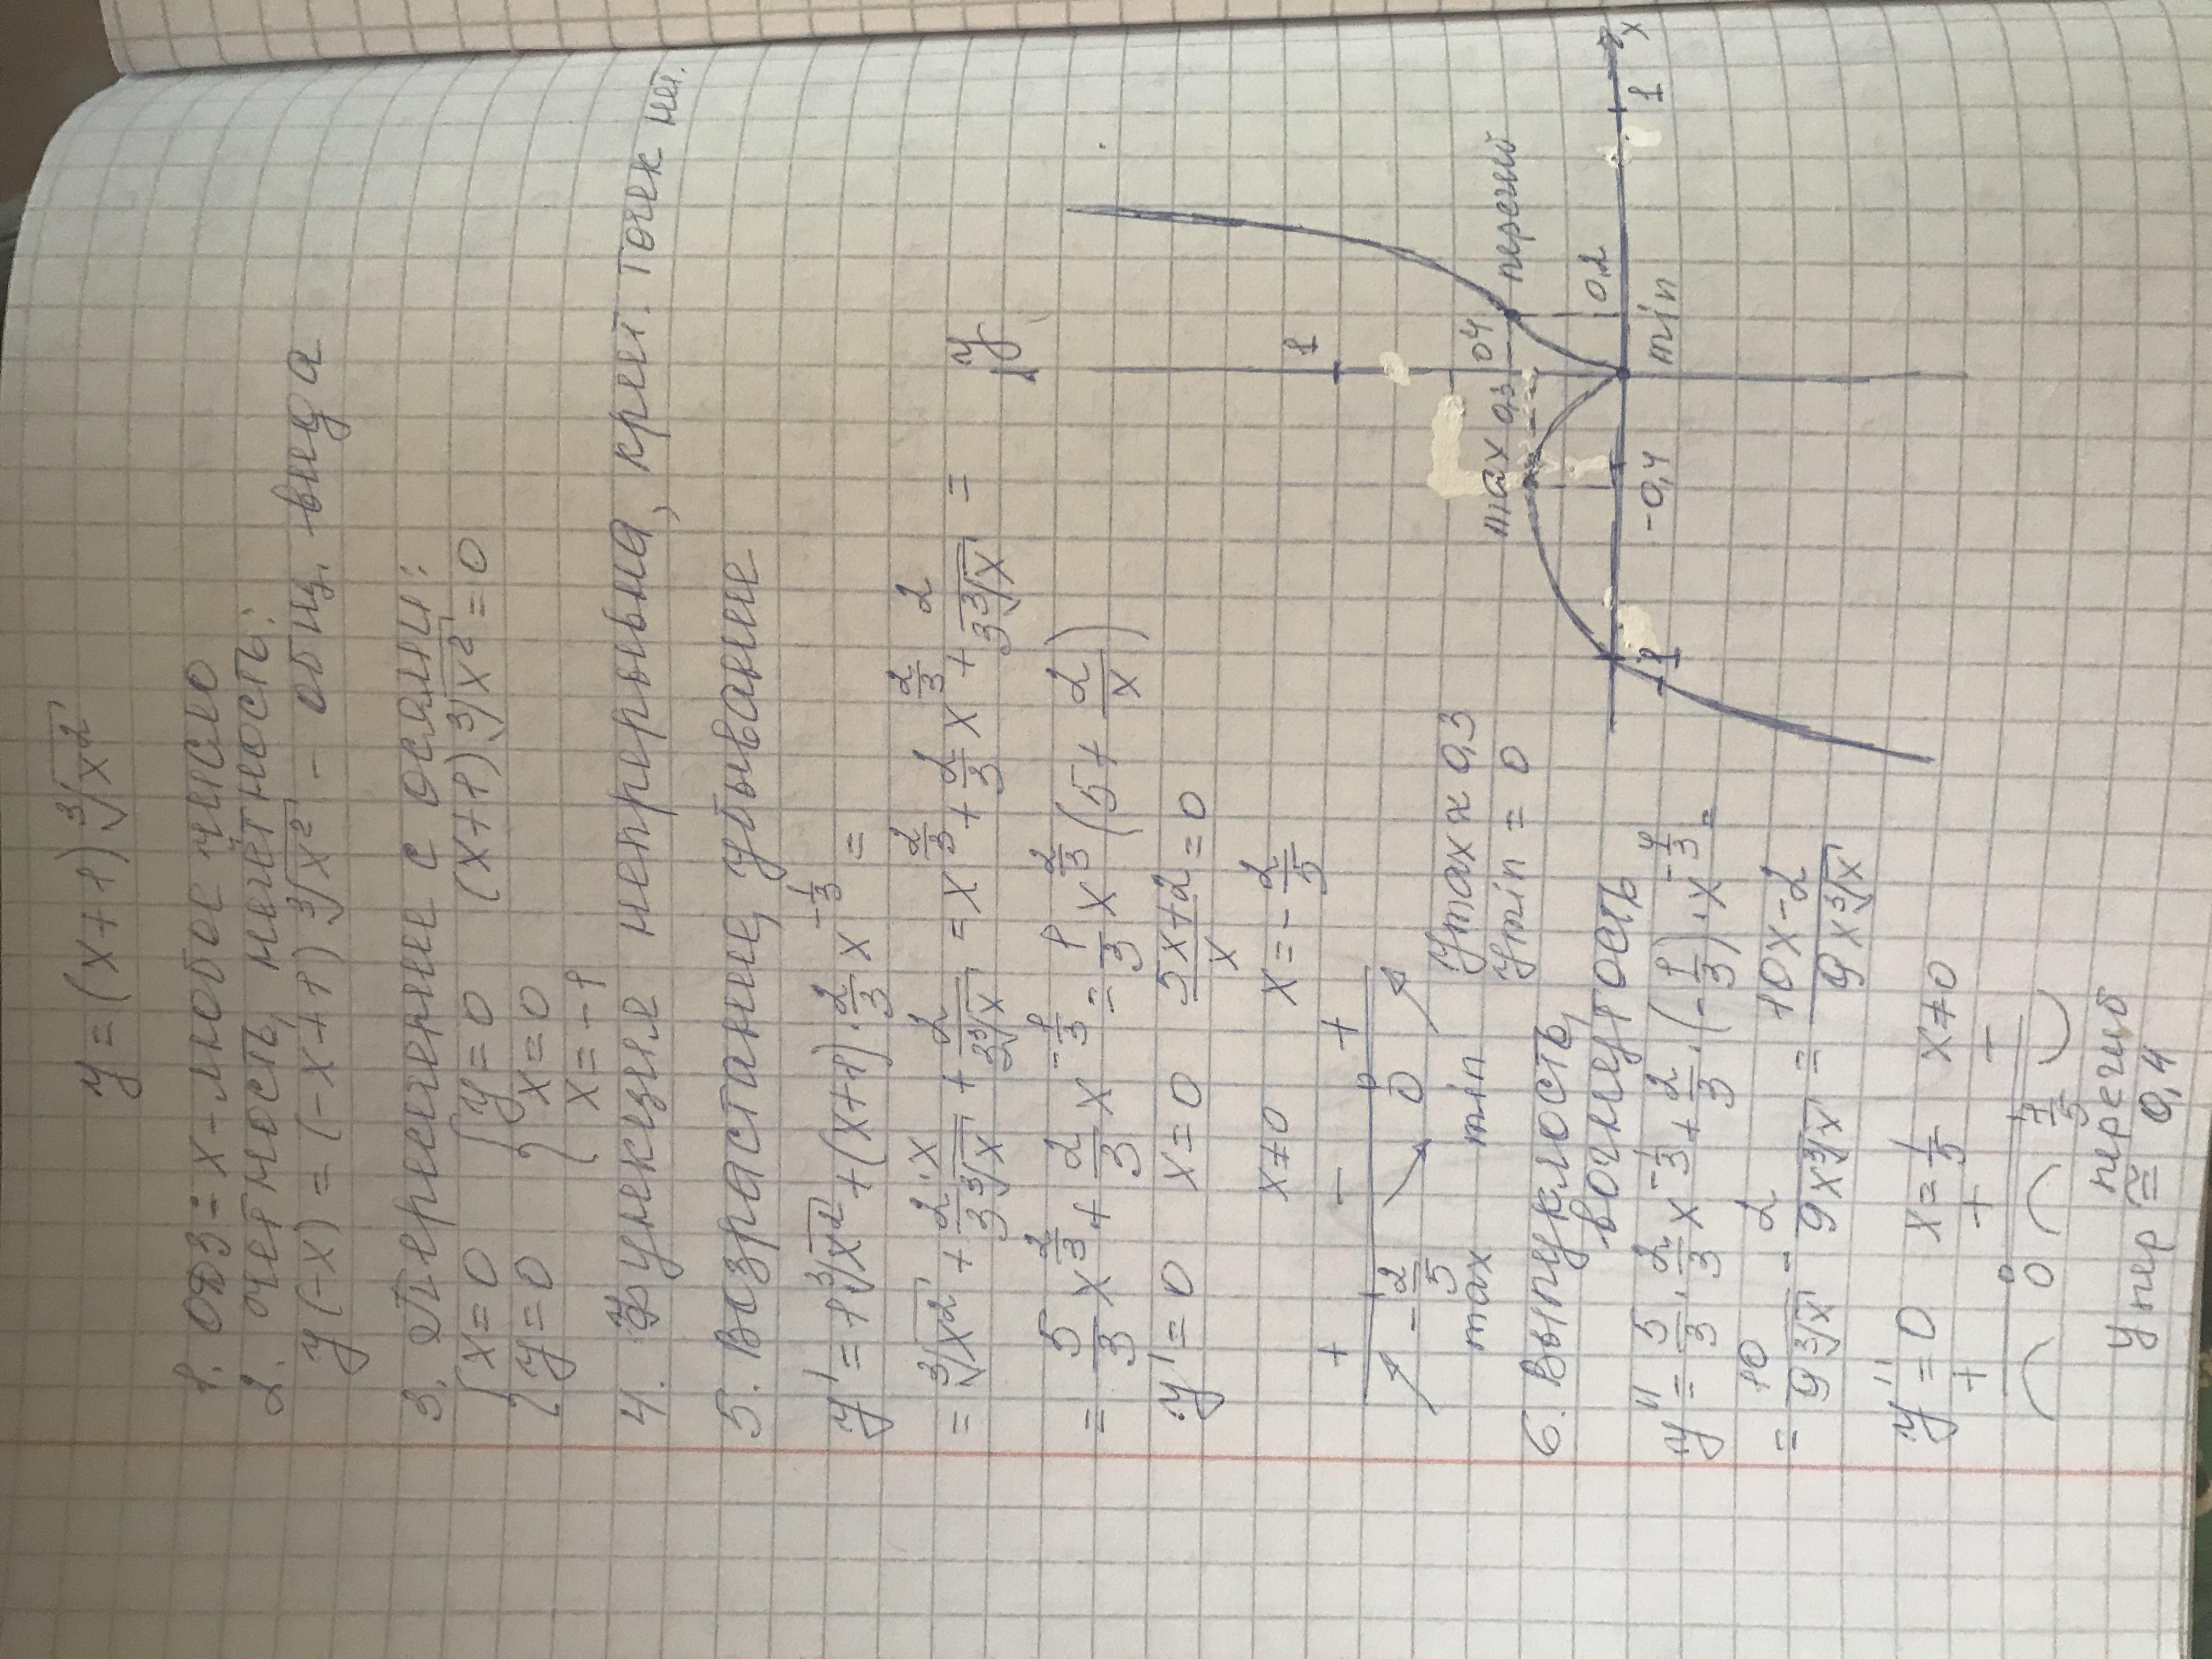 y = (x+1) ∛x²
1. ОДЗ: x - любое число
2. четность, нечётность:
y(-x) = (-x+1) ∛x² - общ. вида
3. Пересечение с осями:
{x=0 {y=0 (x+1) ∛x² = 0
{y=0 {x=0
x=-1
4. Функция непрерывна, крит. точек нет.
5. Возрастание, убывание
y' = 1∛x² + (x+1)·2/3 x^(-1/3) =
= ∛x² + 2·x/3∛x + 2/3∛x = x^(2/3) + 2/3 x^(2/3) + 2/3∛x =
= 5/3 x^(2/3) + 2/3 x^(-1/3) = 1/3 x^(2/3) (5 + 2/x)
y' = 0 x = 0 5x+2/x = 0
x ≠ 0 x = -2/5
+ - +
-2/5 0
max min
y max ≈ 0,3
y min = 0
6. Выпуклость,
вогнутость
y'' = 5/3 · 2/3 x^(-1/3) + 2/3 · (-1/3) · x^(-4/3) =
= 10/9∛x - 2/9x∛x = 10x-2/9x∛x
y'' = 0 x = 1/5 x ≠ 0
+ + -
0 1/5
перегиб
y пер ≅ 0,4
y
1
max 0,3 0,4
перегиб
-1 -0,4 min 0,2 1 x